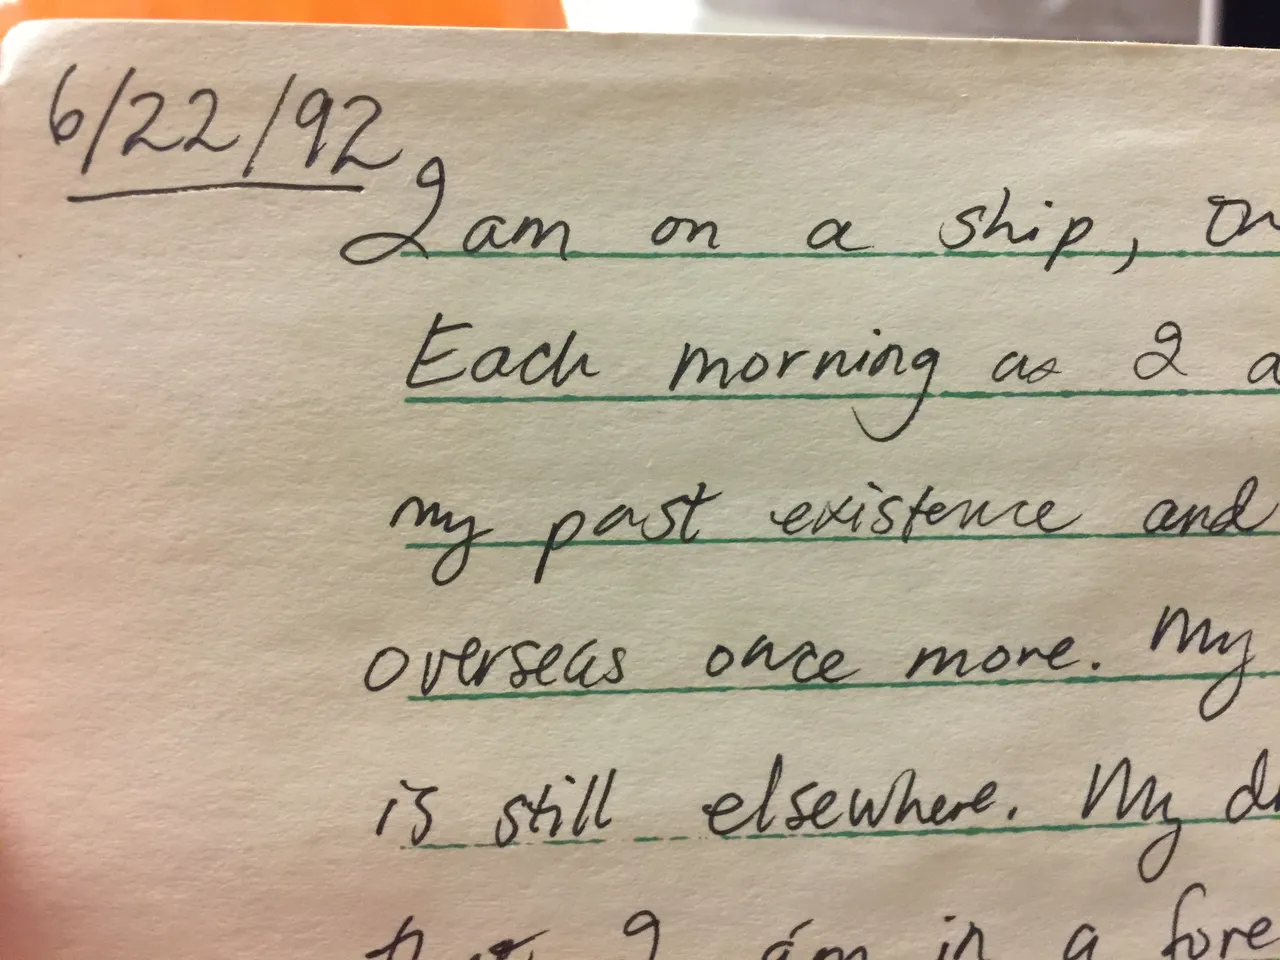 6/22/92
I am on a ship, on
Each morning as I a
my past existence and
overseas once more. My
is still elsewhere. My d
I am in a fore